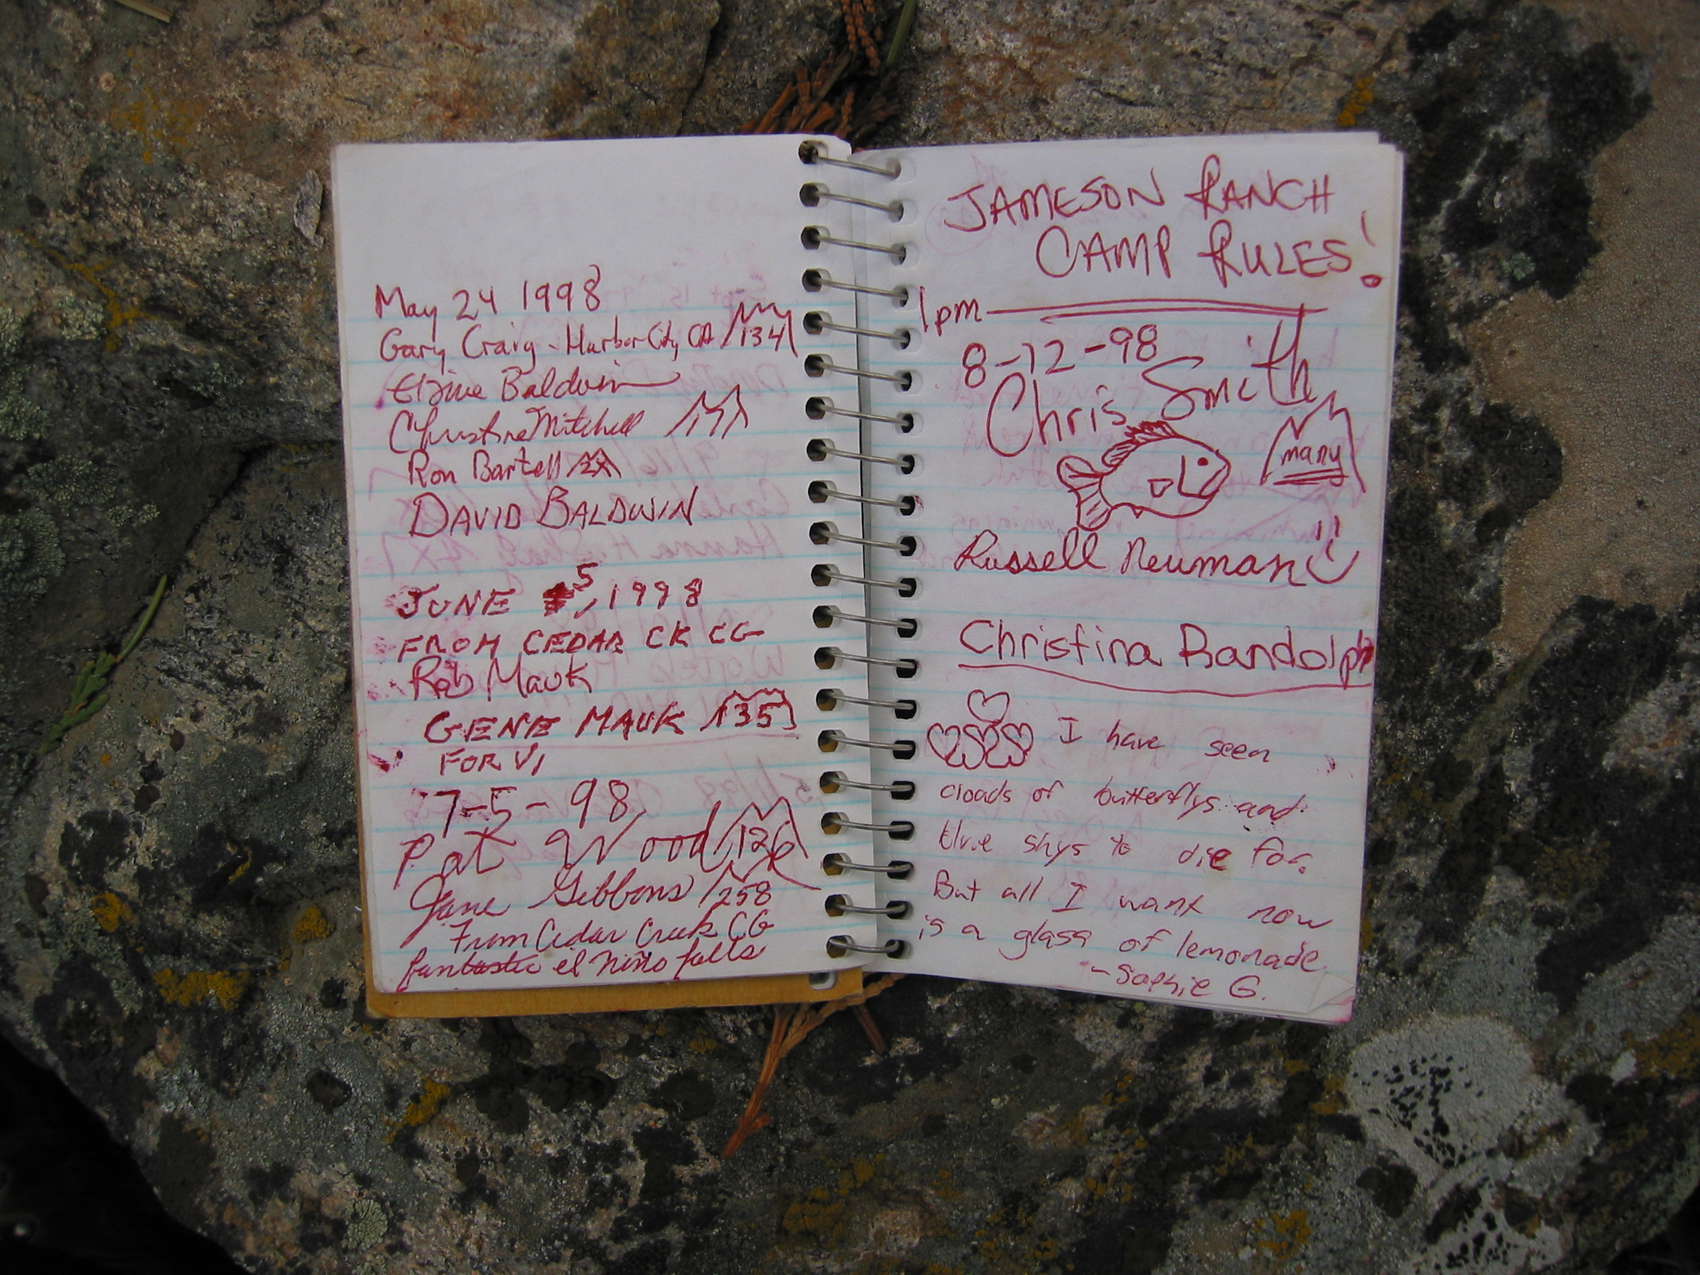 May 24 1998
Gary Craig - Harbor City CA 134
Elaine Baldwin
Christine Mitchell
Ron Bartell
DAVID BALDWIN
JUNE 5, 1998
FROM CEDAR CK CG
Rob Mauk
GENE MAUK 135
FOR VI
7-5-98
Pat Wood 126
Jane Gibbons 258
From Cedar Creek CG
fantastic el niño falls
JAMESON RANCH
CAMP RULES!
1pm
8-12-98
Chris Smith
many
Russell Neuman
Christina Randolph
I have seen
cloads of butterflys and
blue skys to die for.
But all I want now
is a glass of lemonade
- Sophie G.